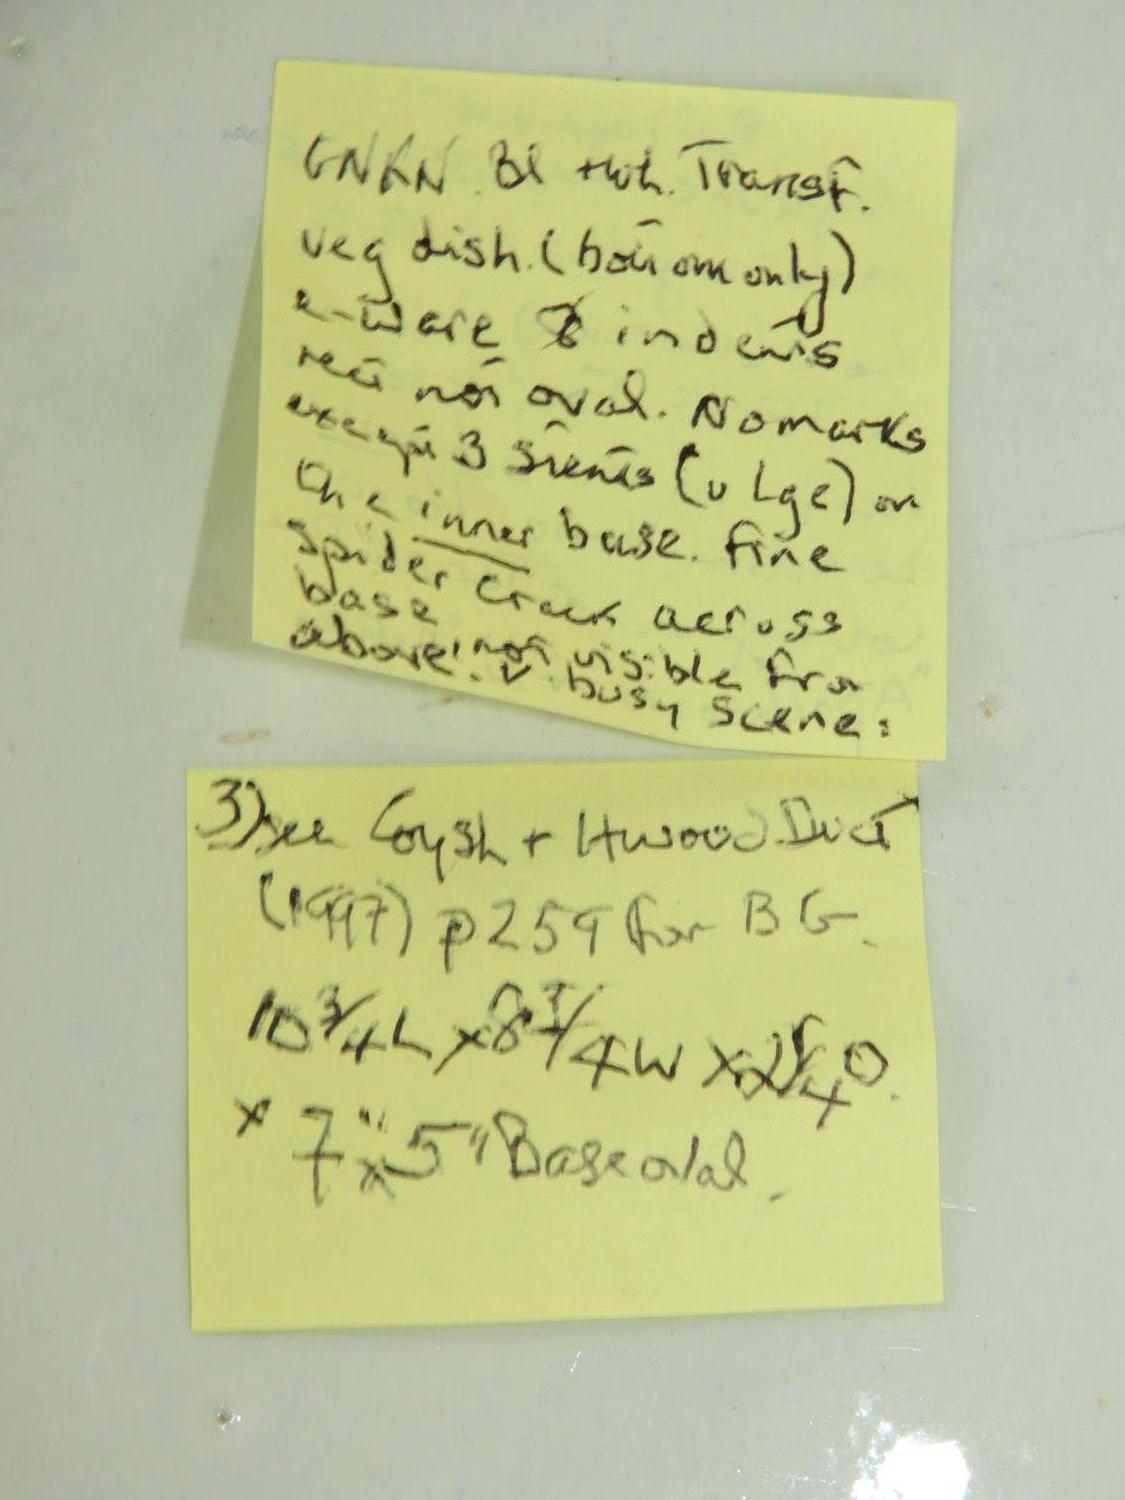 UNKN Bl + Wh. Transf.
Veg dish. (bottom only)
e-ware 8 indents
rect not oval. No marks
except 3 stents (v Lge) on
the inner base. Fine
spider crack across
base not visible from
above! V. busy scene.
3) see Coysh + Hwood. Dict
(1997) p259 for BG.
10 3/4 L x 8 3/4 W x 2 1/4 D.
x 7" x 5" Base oval.